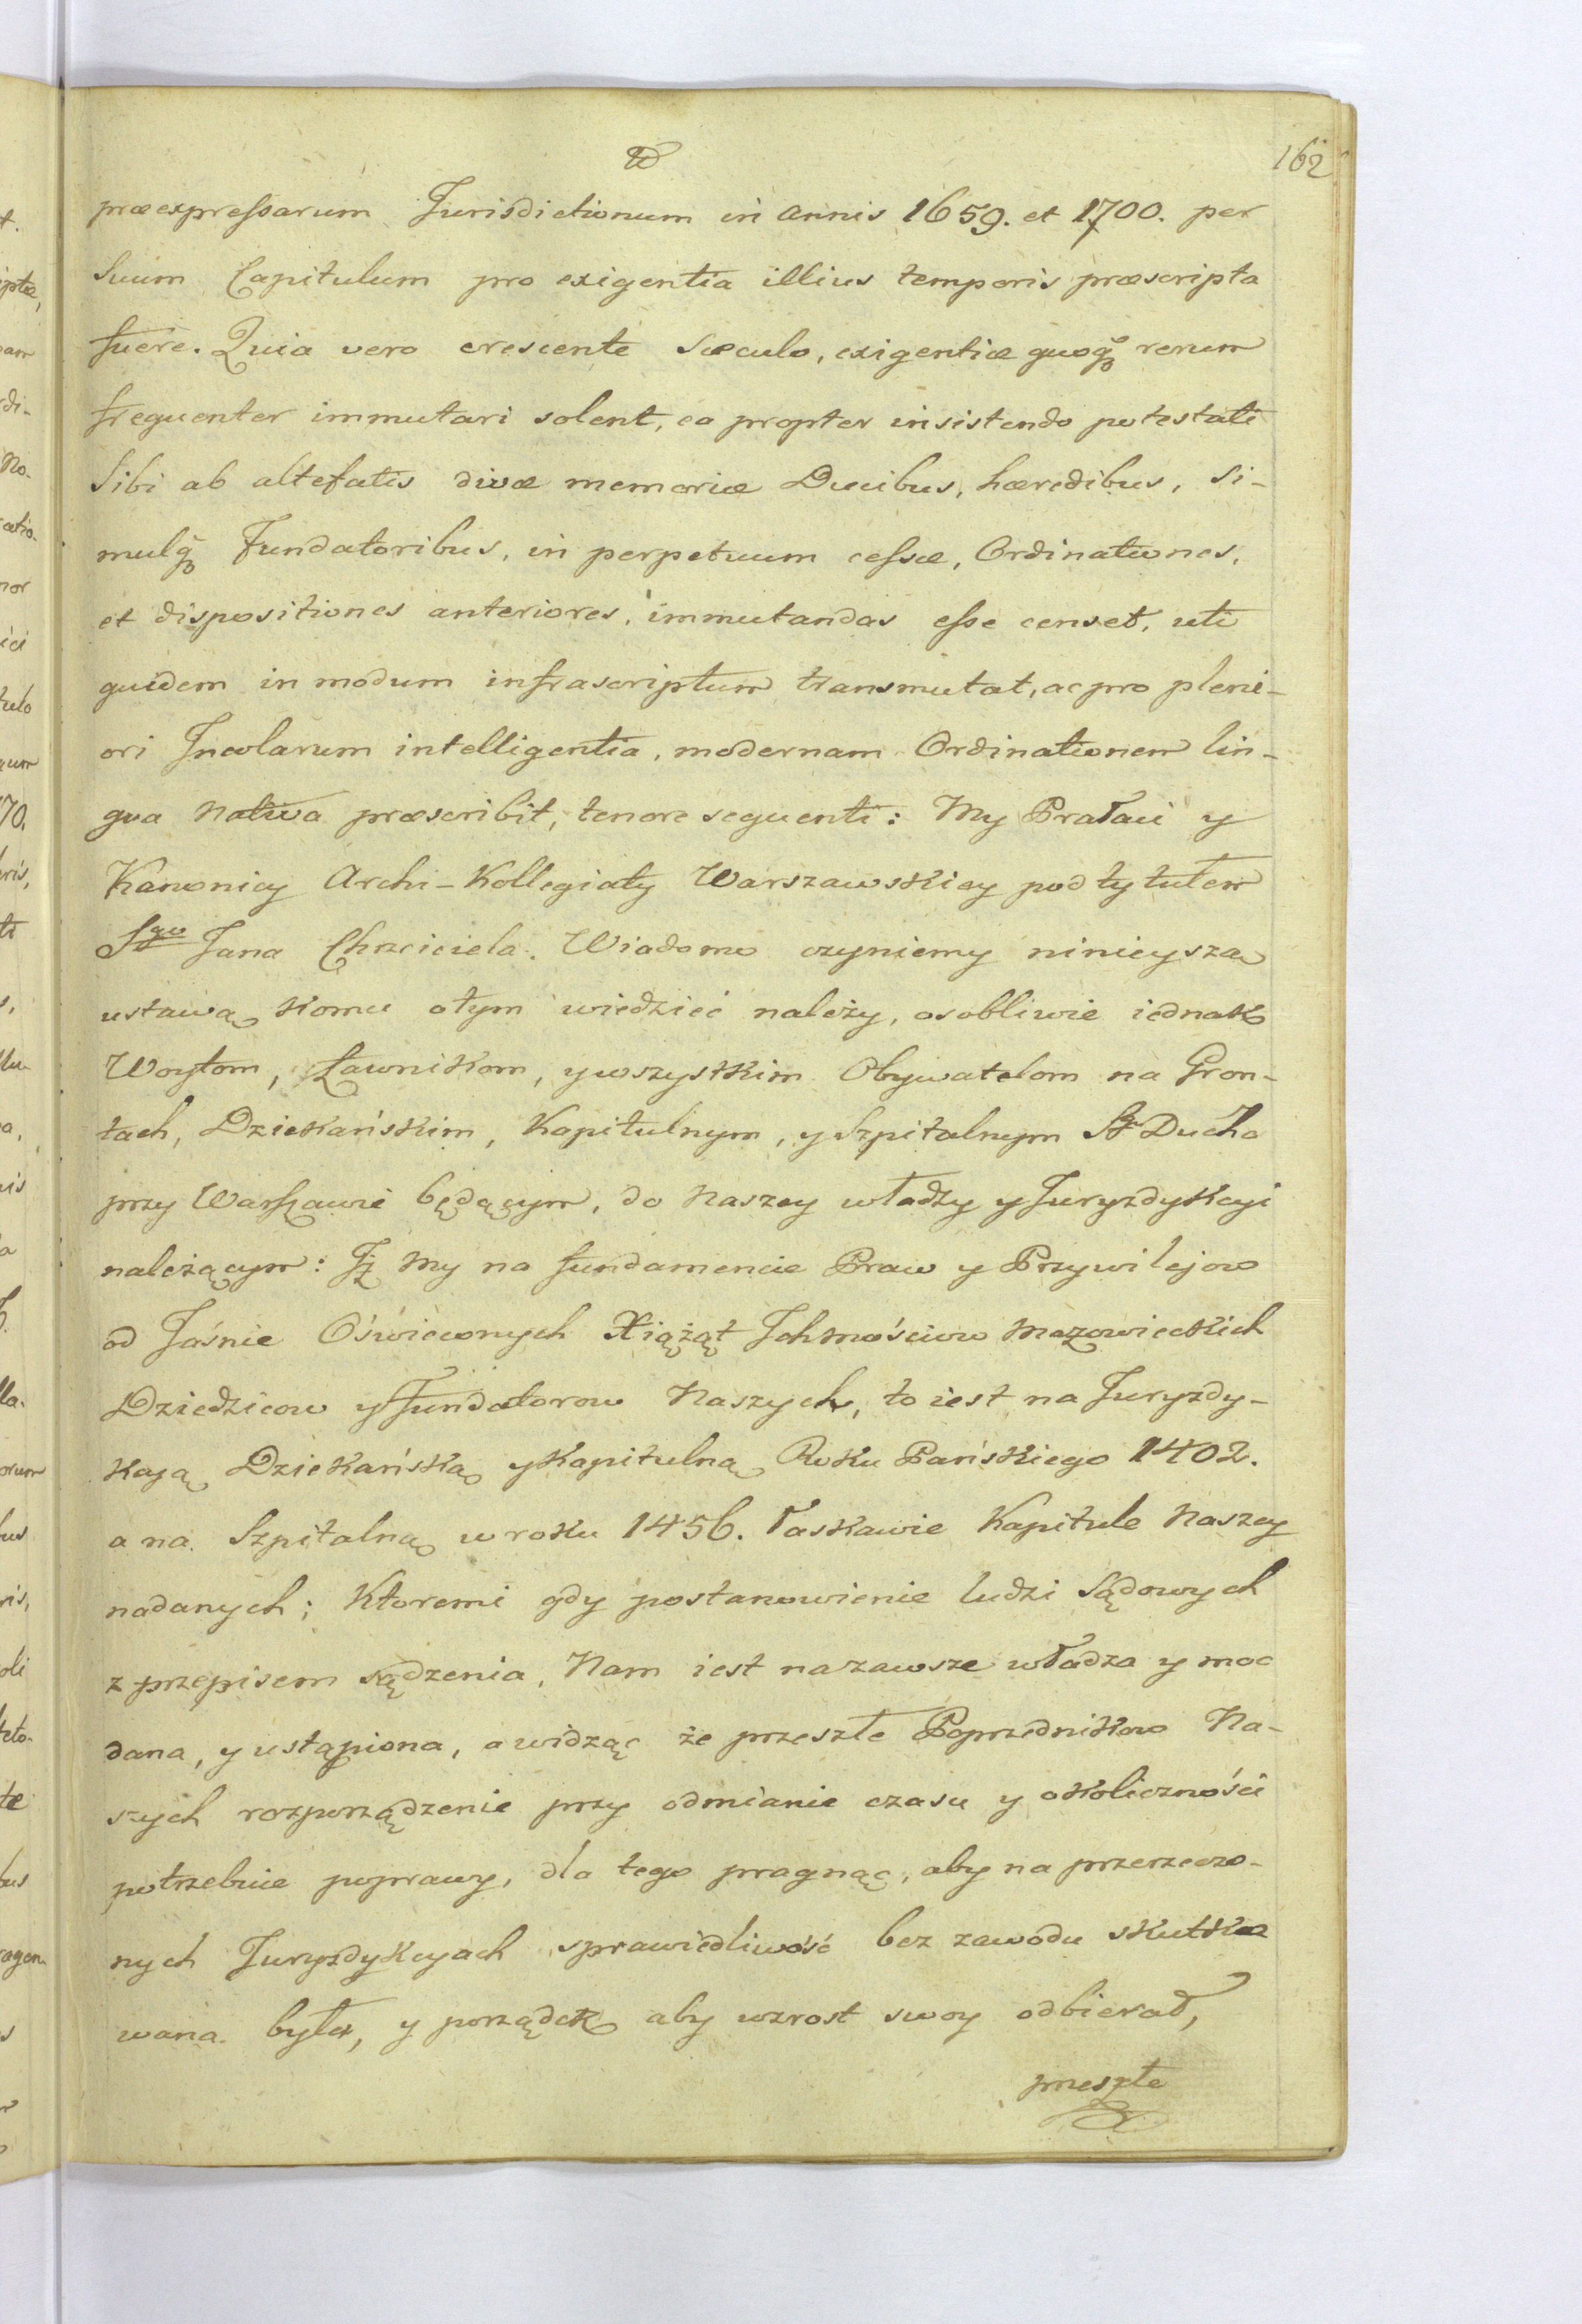 162
præexpressarum Jurisdictionum in annis 1659. et 1700. per
Suum Capitulum pro exigentia illius temporis præscripta
fuere. Quia vero crescente sæculo, exigentiæ quoqȝ rerum
frequenter immutari solent, ea propter insistendo potestati
Sibi ab altefatis divæ memoriæ Ducibus, hæredibus, Si-
mulqȝ Fundatoribus, in perpetuum cessæ, Ordinationes,
et dispositiones anteriores, immutandas esse censet, uti
quidem in modum infrascriptum transmutat, ac pro pleni-
ori Incolarum intelligentia, modernam Ordinationem lin-
gua Nativa præscribit, tenore sequenti: My Prałaci y
Kanonicy Archi-Kollegiaty Warszawskiey pod tytułem
Sgo Jana Chrzciciela. Wiadomo czyniemy ninieyszą
ustawą komu o tym wiedzieć należy, osobliwie iednak
Woytom, Ławnikom, y wszystkim Obywatelom na Gron-
tach, Dziekańskim, Kapitulnym, y Szpitalnym St Ducha
przy Warszawie będącym, do Naszey władzy y Juryzdykcyi
należącym: Jż My na fundamencie Praw y Przywilejow
od Jaśnie Oświeconych Xiążąt Jchmościow Mazowieckich
Dziedzicow y Fundatorow Naszych, to iest na Juryzdy-
kcyą Dziekańską y Kapitulną Roku Pańskiego 1402.
a na Szpitalną w roku 1456. łaskawie Kapitule Naszey
nadanych; Ktoremi gdy postanowienie ludzi Sądowych
z przepisem sądzenia, Nam iest na zawsze władza y moc
dana, y ustąpiona, a widząc że przeszłe Poprzednikow Na-
szych rozporządzenie przy odmianie czasu y okoliczności
potrzebuie poprawy, dla tego pragnąc, aby na przerzeczo-
nych Juryzdykcyach sprawiedliwość bez zawodu skutko
wana była, y porządek aby wzrost swoy odbierał,
przeszłe